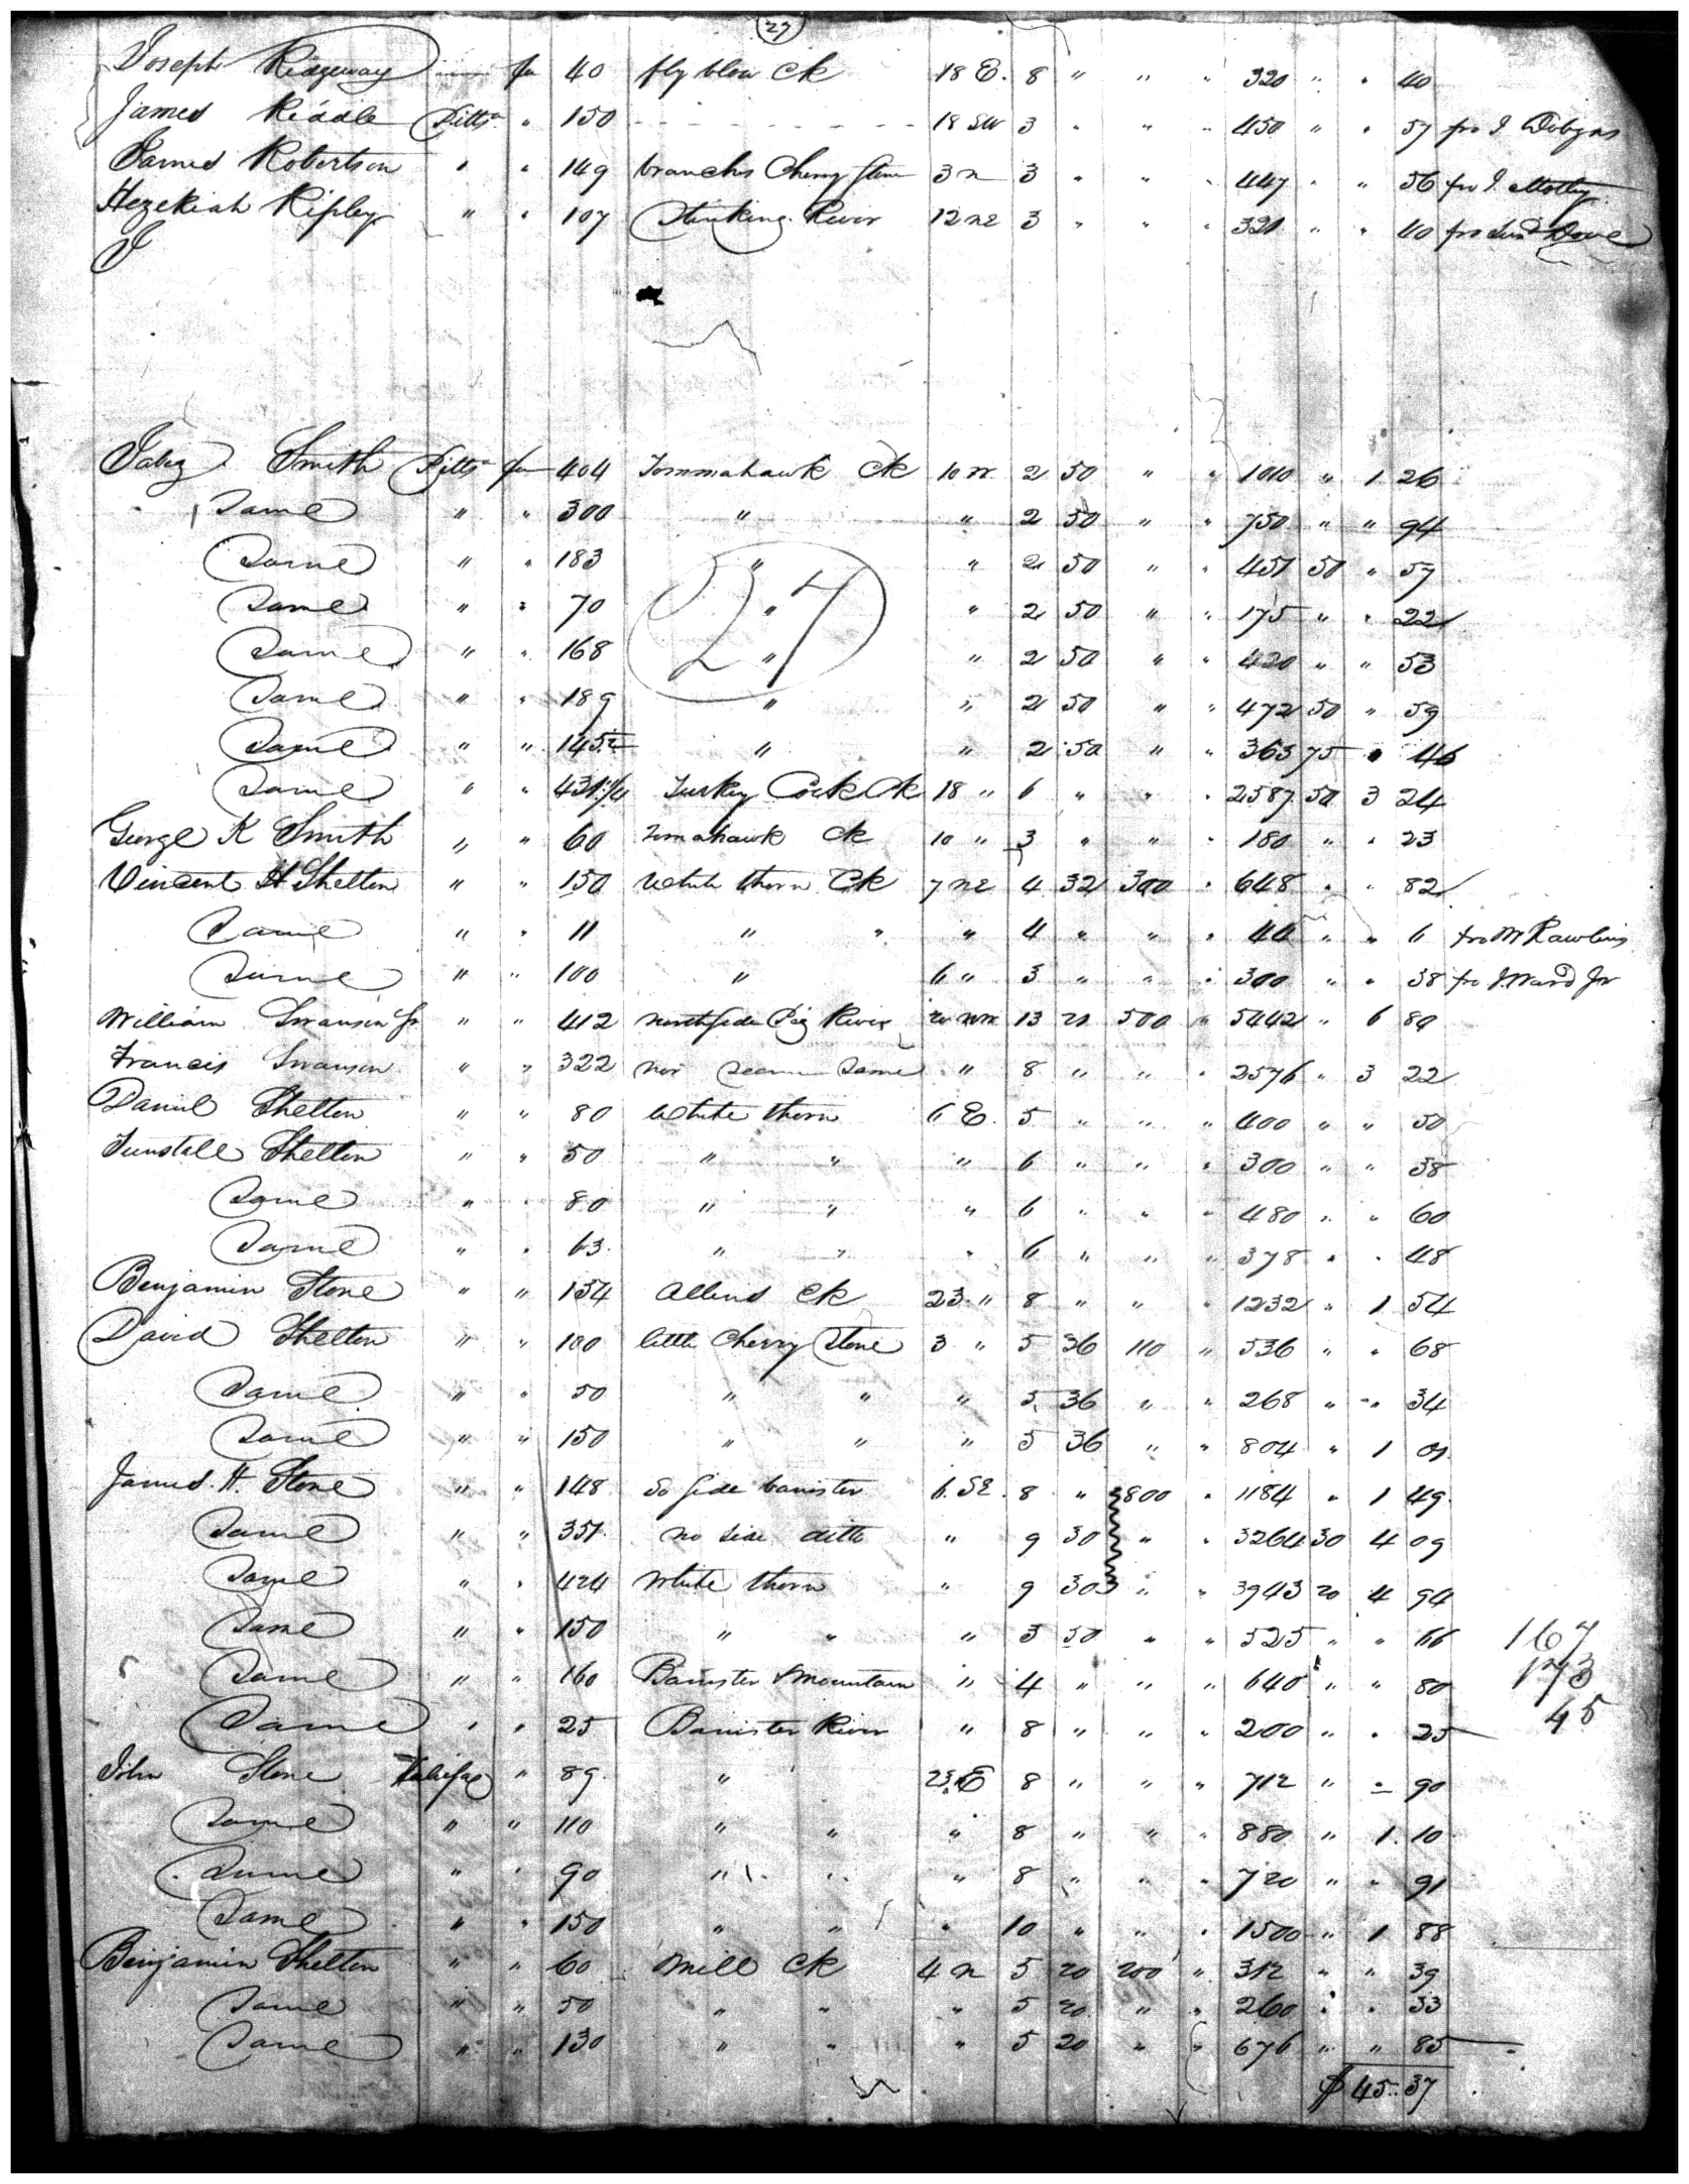 27
Joseph Ridgeway " fee 40 fly blow Ck 18 E. 8 " " " 320 " " 40
James Riddle Pitts " 150 - - - - - - - - 18 SW 3 " " " 450 " " 57 fro J.
James Robertson " " 149 branches Cherry Stone 3 n 3 " " " 447 " " 56 fro J. Motley
Hezekiah Ripley " " 107 Stinking River 12 NE 3 " " " 321 " " 40 fro Dove
27
Jabez Smith Pitts fee 404 Tommahawk Ck 10 W. 2 50 " " 1010 " 1 26
Same " " 300 " " 2 50 " " 750 " " 94
Same " " 183 " " 2 50 " " 457 50 " 57
Same " " 70 " " 2 50 " " 175 " " 22
Same " " 168 " " 2 50 " " 420 " " 53
Same " " 189 " " 2 50 " " 472 50 " 59
Same " " " " 2 50 " " 363 75 " 46
Same " " 431 1/4 Turkey Cock Ck 18 " 6 " " " 2587 50 3 24
George K Smith " " 60 Tomahawk Ck 10 " 3 " " " 180 " " 23
Vincent H Shelton " " 150 White thorn Ck 7 NE 4 32 300 " 648 " " 82
Same " " 11 " " " 4 " " " 44 " " 6 fro W Rawlins
Same " " 100 " 6 " 3 " " " 300 " " 38 fro J. Ward Jr
William Swanson Jr " " 412 north side Pig River 20 NW 13 21 500 " 5442 " 6 80
Francis Swanson " " 322 Same " 8 " " " 2576 " 3 22
Daniel Shelton " " 80 White thorn 6 E. 5 " " " 400 " " 50
Tunstall Shelton " " 50 " " " 6 " " " 300 " " 38
Same " " 80 " " " 6 " " " 480 " " 60
Same " " 63 " " " 6 " " " 378 " " 48
Benjamin Stone " " 154 Allens Ck 23 " 8 " " " 1232 " 1 54
David Shelton " " 100 little Cherry Stone 3 " 5 36 110 " 536 " " 68
Same " " 50 " " " 5 36 " " 268 " " 34
Same " " 150 " " " 5 36 " " 804 " 1 01
James H. Stone " " 148 So side banister 6. SE. 8 " 800 " 1184 " 1 49
Same " " 351 no side ditto " 9 30 " " 3264 30 4 09
Same " " 424 White thorn " 9 30 " " 3943 20 4 94
Same " " 150 " " " 3 50 " " 525 " " 66
167
Same " " 160 Banister Mountain " 4 " " " 640 " " 80
173
Same " " 25 Banister River " 8 " " " 200 " " 25
45
John Stone Halifax " 89 " 23 E 8 " " " 712 " " 90
Same " " 110 " " " 8 " " " 880 " 1. 10
Same " " 90 " " " 8 " " " 720 " " 91
Same " " 150 " " " 10 " " " 1500 " 1 88
Benjamin Shelton " " 60 Mill Ck 4 n 5 20 200 " 312 " " 39
Same " " 50 " " " 5 20 " " 260 " " 33
Same " " 130 " " " 5 20 " " 676 " " 85
$ 45..37